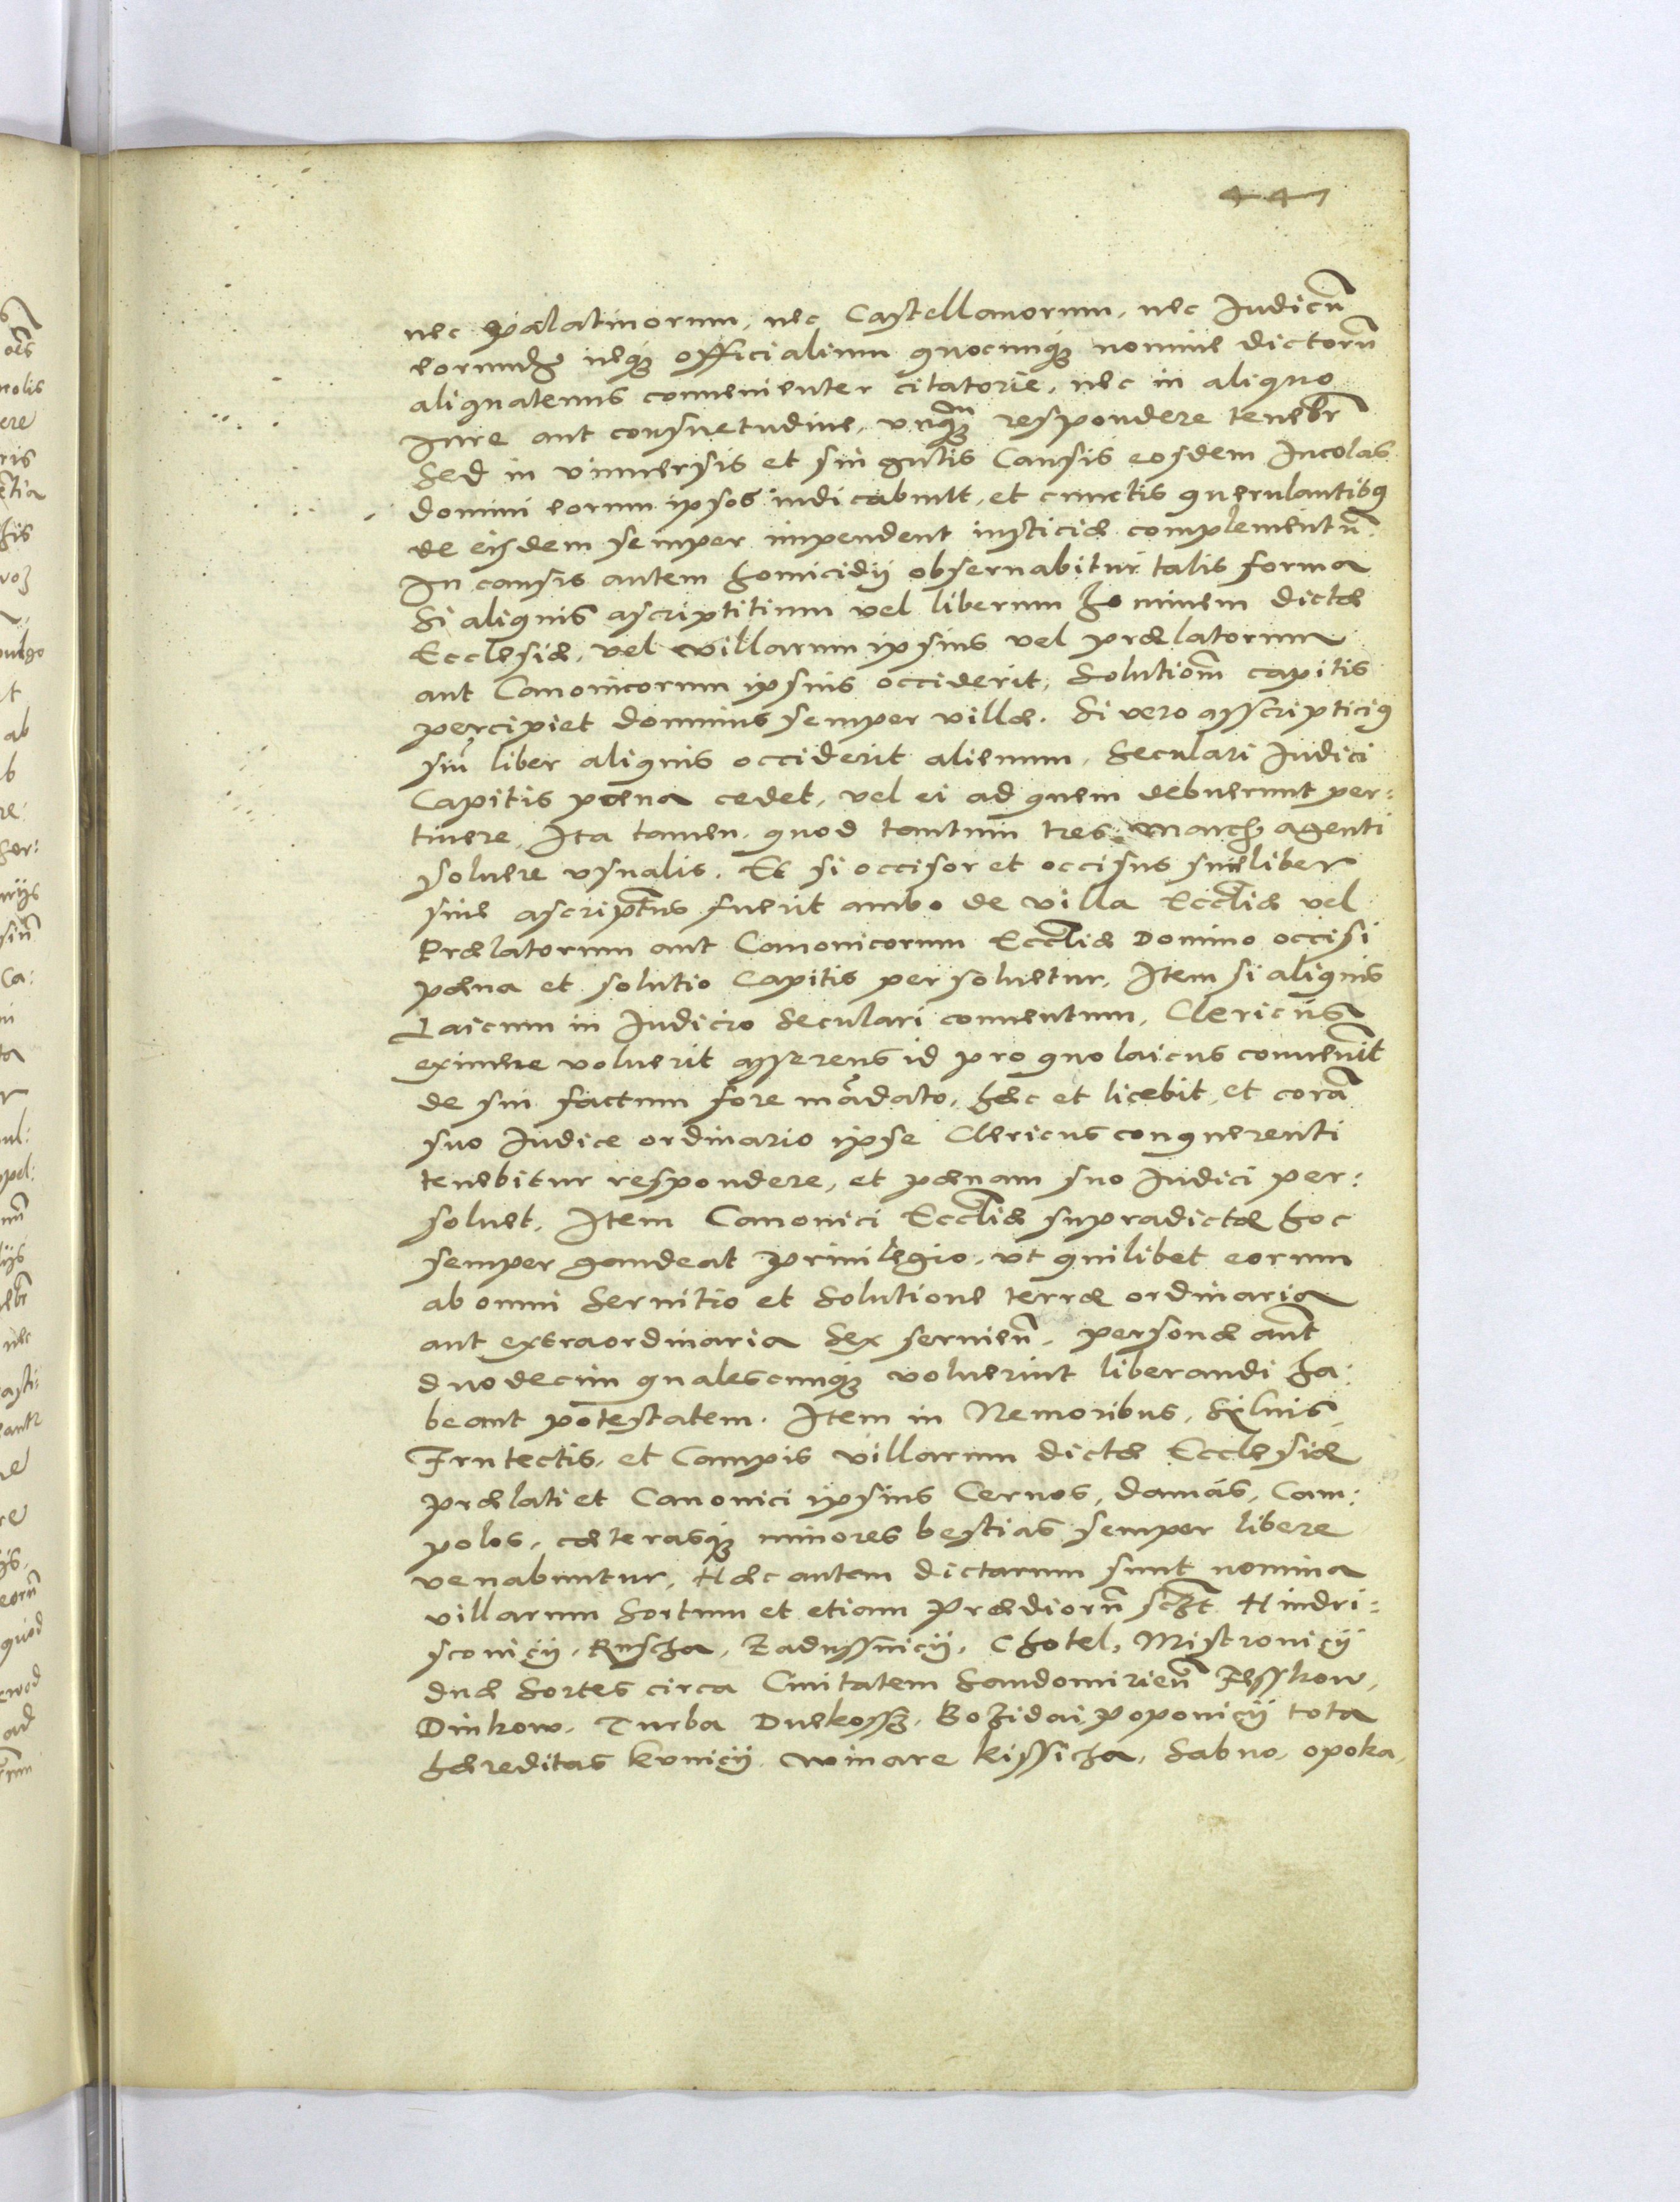 447
nec palatinorum, nec Castellanorum, nec Iudicũ
eorundẽ neq officialium quocunq nomine dictorũ
aliquatenus conuenienter citatorie, nec in aliquo
Iure aut consuetudine, vnqm̃ respondere tenebr̃
Sed in vniuersis et singulis Causis eosdem Incolas
domini eorum ipsos iudicabunt, et cunctis querulantibq
de eisdem semper impendent iusticiæ complementũ.
In causis autem homicidij obseruabitur talis forma
Si aliquis ascriptitium vel liberum hominem dictæ
Ecclesiæ, vel willarum ipsius vel prælatorum
aut Canonicorum ipsius occiderit, Solutiõm capitis
percipiet dominus semper villæ. Si vero asscripticiq
siũ liber aliquis occiderit alienum, Seculari Iudici
Capitis pœna cedet, vel ei ad quem debuerunt per:
tinere, Ita tamen quod tantum tres march agenti
soluere vsualis. Et si occisor et occisus siue liber
siue ascriptus fuerit ambo de villa Eccliæ vel
Prælatorum aut Canonicorum Eccliæ Domino occisi
pœna et solutio Capitis persoluetur. Item si aliquis
Laicum in Iudicio Seculari conuentum, Clericus
eximere voluerit asserens id pro quo laicus conuenit
de sui factum fore mãdato, hæc et licebit, et corã
suo Iudice ordinario ipse Clericus conquerenti
tenebitur respondere, et pœnam suo Iudici per:
soluet. Item Canonici Eccliæ supradictæ hoc
semper gaudeat Priuilegio, vt quilibet eorum
ab omni Seruitio et Solutione terræ ordinaria
aut extraordinaria Sex seruieñ. personæ aũt
duodecim qualescunq voluerint liberandi ha:
beant potestatem. Item in Nemoribus, Siluis,
Frutectis, et Campis villarum dictæ Ecclesiæ
prælati et Canonici ipsius Ceruos, damas, Cam:
polos, cæterasq minores bestias semper libere
venabuntur, Hæc autem dictarum sunt nomina
villarum Sortum et etiam Prædiorũ sczt Hindri:
sconicij, Ruscha, Zadussnicij, Chotel, Mistronicij
duæ Sortes circa Ciuitatem Sandomirieñ Jesskow,
Dinkow, Turba Duekossz, Bozidai, Poponicij tota
hæreditas kunicij winare kissicza, Sabno, opoka,